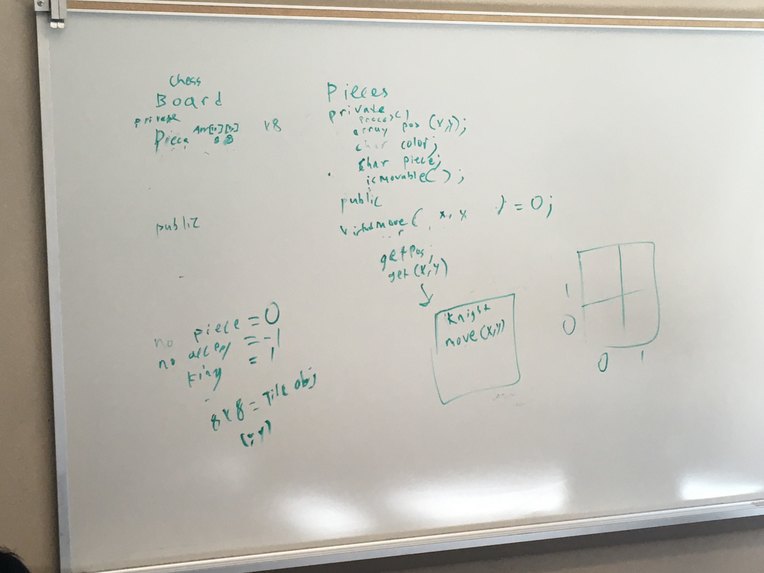 Chess
Board
private
Piece Arr[8][8]
public
Pieces
private
array pos (x,y);
char color;
char piece;
isMovable( );
public
virtual move( x, y ) = 0;
getPos;
get(x,y)
Knight
move(x,y)
1
0
0 1
no piece = 0
no = -1
king = 1
8x8 = Tile obj
(x,y)